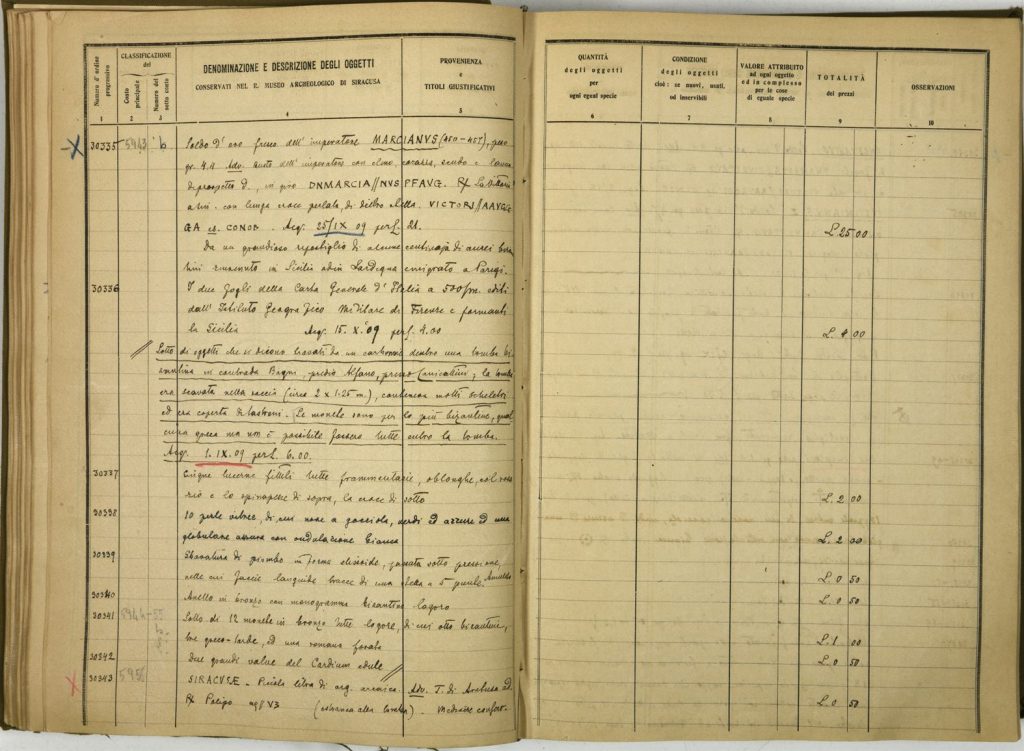 Numero d'ordine progressivo
CLASSIFICAZIONE del
Conto principale
Numero del sotto conto
DENOMINAZIONE E DESCRIZIONE DEGLI OGGETTI
CONSERVATI NEL R. MUSEO ARCHEOLOGICO DI SIRACUSA
PROVENIENZA
e
TITOLI GIUSTIFICATIVI
1 2 3 4 5
30335 5943 b. Soldo d'oro fresco dell'imperatore MARCIANVS (450-457), peso
gr. 4.4 Adv. Busto dell'imperatore con elmo, corazza, scudo e lancia
di prospetto d., in giro DNMARCIA//NVS PFAVG. Rx La Vittoria
a sin. con lunga croce perlata, di dietro stella. VICTORI//AAVGG
GA es. CONOB. Acq. 25/IX 09 per £. 21.
Da un grandioso ripostiglio di alcune centinaja di aurei bizan
tini rinvenuto in Sicilia od in Sardegna emigrato a Parigi.
30336 I due fogli della Carta Generale d'Italia a 500/m. editi
dall'Istituto Geografico Militare di Firenze e formanti
la Sicilia Acq. 15. X. 09 per £. 4.00
Lotto di oggetti che si dicono trovati da un carbonaio dentro una tomba bi
zantina in contrada Bagni, predio Alfano, presso Canicattini; la tomba
era scavata nella roccia (circa 2 x 1.25 m.), conteneva molti scheletri
ed era coperta di lastroni. Le monete sono per lo più bizantine, qual
cuna greca ma non è possibile fossero tutte entro la tomba.
Acq. 1. IX. 09 per £. 6.00.
30337 Cinque lucerne fittili tutte frammentarie, oblunghe, col
e lo spinapesce di sopra, la croce di sotto
30338 10 perle vitree, di cui nove a gocciola, verdi ed azzurre ed una
globulare azzurra con ondulazione bianca
30339 di piombo in forma elissoide, sotto pressione,
nelle cui faccie languide tracce di una stella a 5 punte. Amuleto
30340 Anello in bronzo con monogramma bizantino logoro
30341 5944-55 Lotto di 12 monete in bronzo tutte logore, di cui otto bizantine,
tre greco-tarde, ed una romana forata
30342 Due grandi valve del Cardium edule
30343 5956 SIRACVSÆ - Piccola litra di arg. arcaica. Adv. T. di Aretusa ad.
Rx Polipo (estranea alla tomba). Mediocre conserv.
QUANTITÀ
degli oggetti
per
ogni egual specie
CONDIZIONE
degli oggetti
cioè: se nuovi, usati,
od inservibili
VALORE ATTRIBUITO
ad ogni oggetto
ed in complesso
per le cose
di eguale specie
TOTALITÀ
dei prezzi
OSSERVAZIONI
6 7 8 9 10
£. 25 00
£. 4 00
£. 2 00
£. 2 00
£. 0 50
£. 0 50
£. 1 00
£. 0 50
£. 0 50